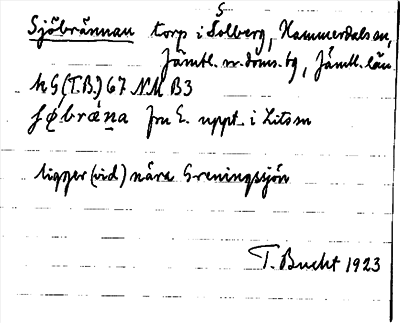 Sjöbrännan torp i Solberg, Hammerdals sn,
Jämtl. n. doms. tg, Jämtl. län
hS (T.B.) 67 N.M B3
frn E. uppt. i Lits sn
ligger (vid) nära Greningssjön
T. Bucht 1923